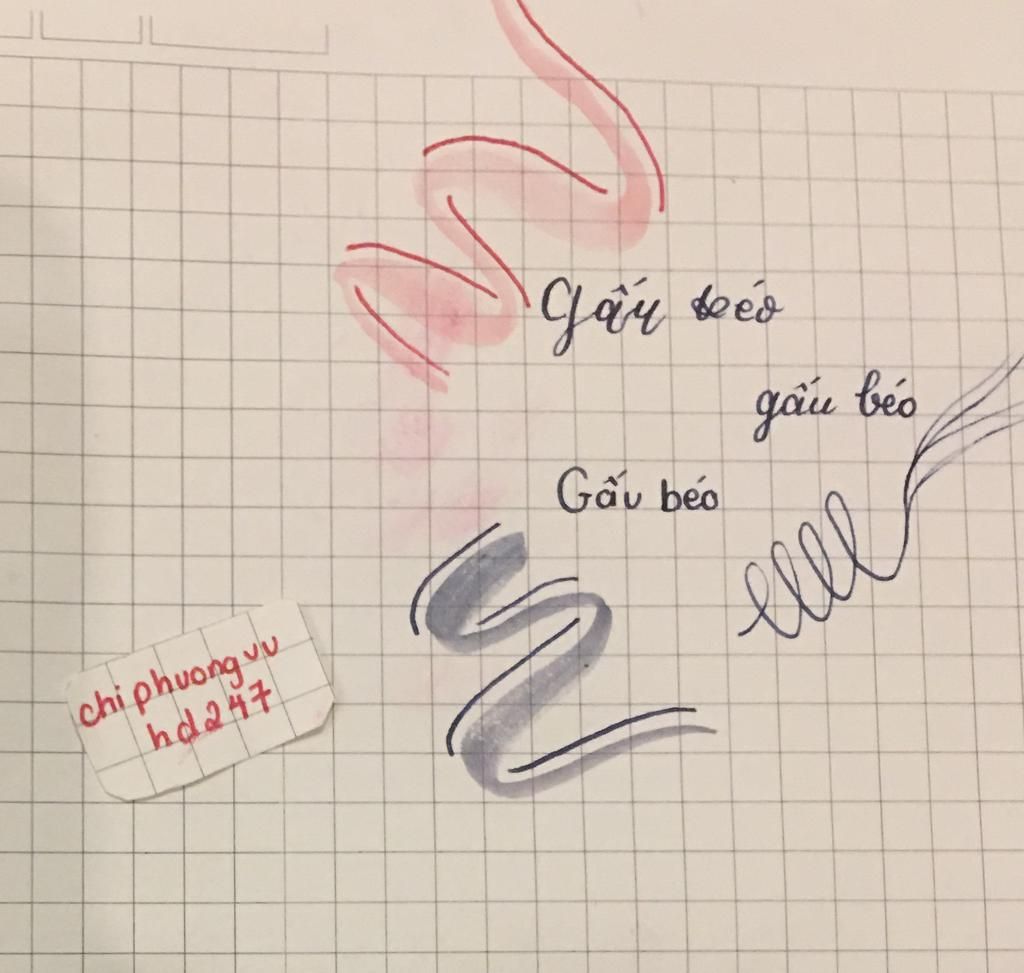 Gấu béo
gấu béo
Gấu béo
chiphuongvu
hd247